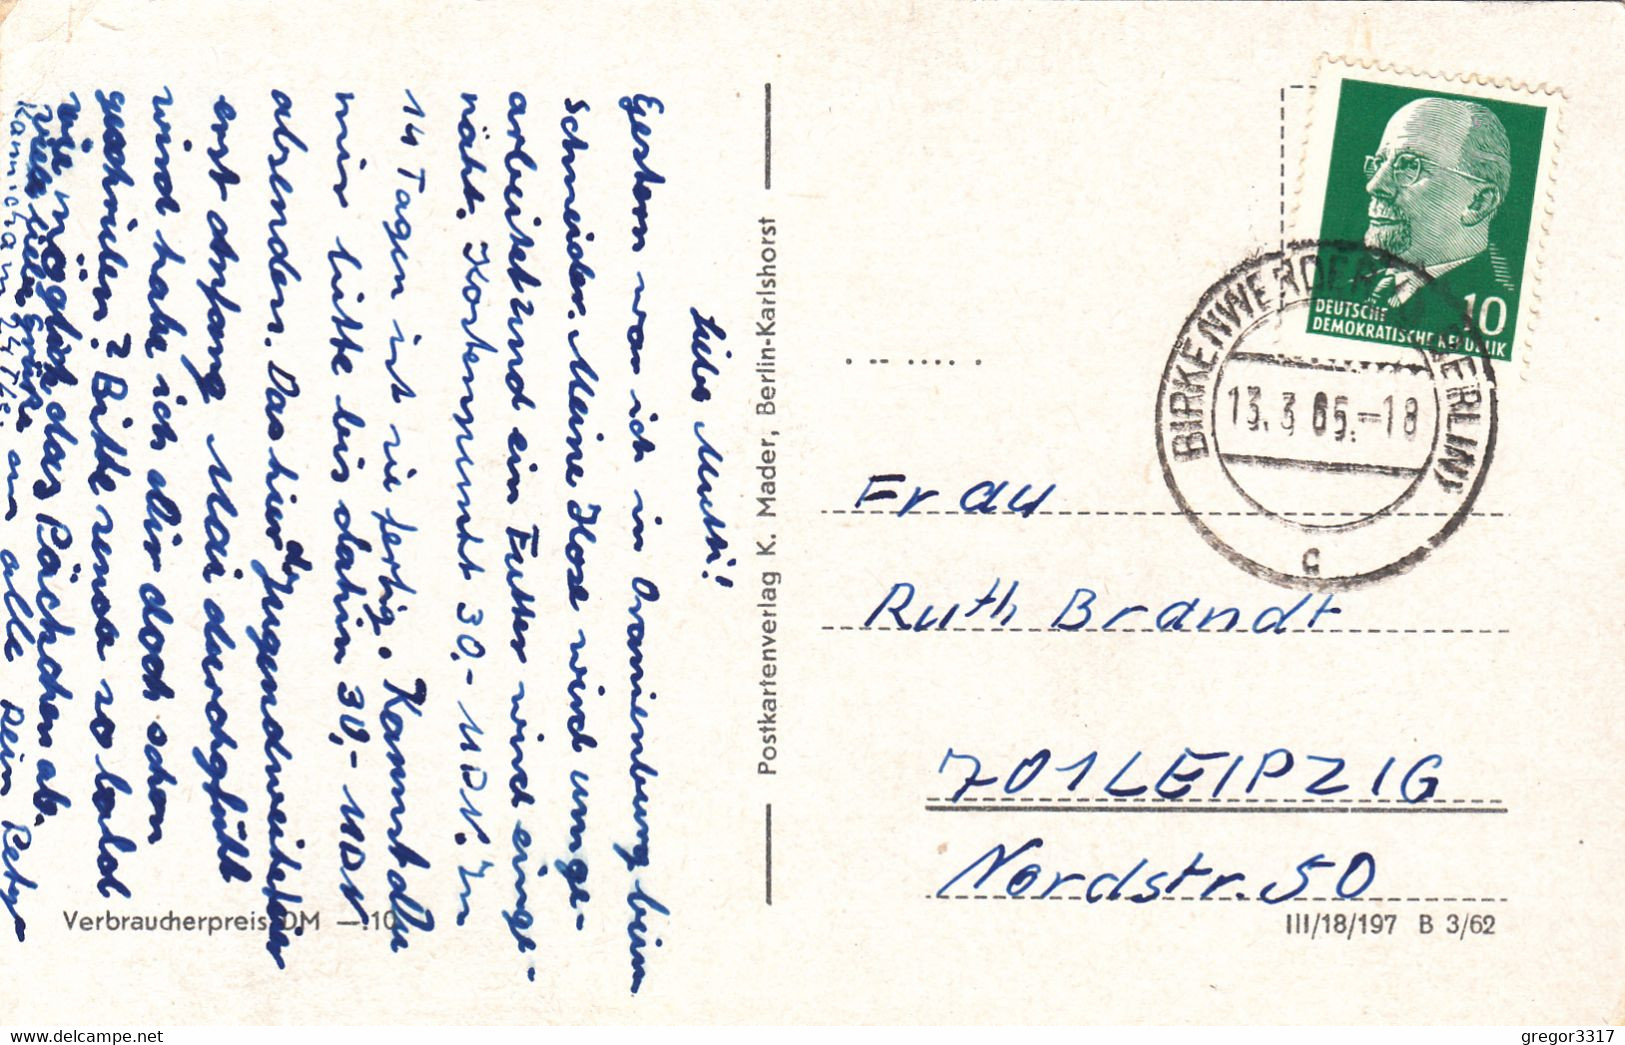 Liebe Mutti!
Gestern war ich in Oranienburg beim
Schneider. Meine Hose wird umge-
arbeitet und ein Futter wird einge-
näht. Kostenpunkt 30,- MDN. In
14 Tagen ist sie fertig. Kannst du
mir bitte bis dahin 30,- MDN
absenden. Das hier
d. Jugendweihe
erst Anfang Mai durchgeführt
wird habe ich dir doch schon
geschrieben? Bitte sende so bald
wie möglich das Päckchen ab.
Viele liebe Grüße an alle Dein Peter
Verbraucherpreis DM —.10
Postkartenverlag K. Mader, Berlin-Karlshorst
DEUTSCHE
DEMOKRATISCHE REPUBLIK
10
BIRKENWERDER BERLIN)
13.3.65.-18
c
Frau
Ruth Brandt
701 LEIPZIG
Nordstr. 50
III/18/197 B 3/62
gregor3317